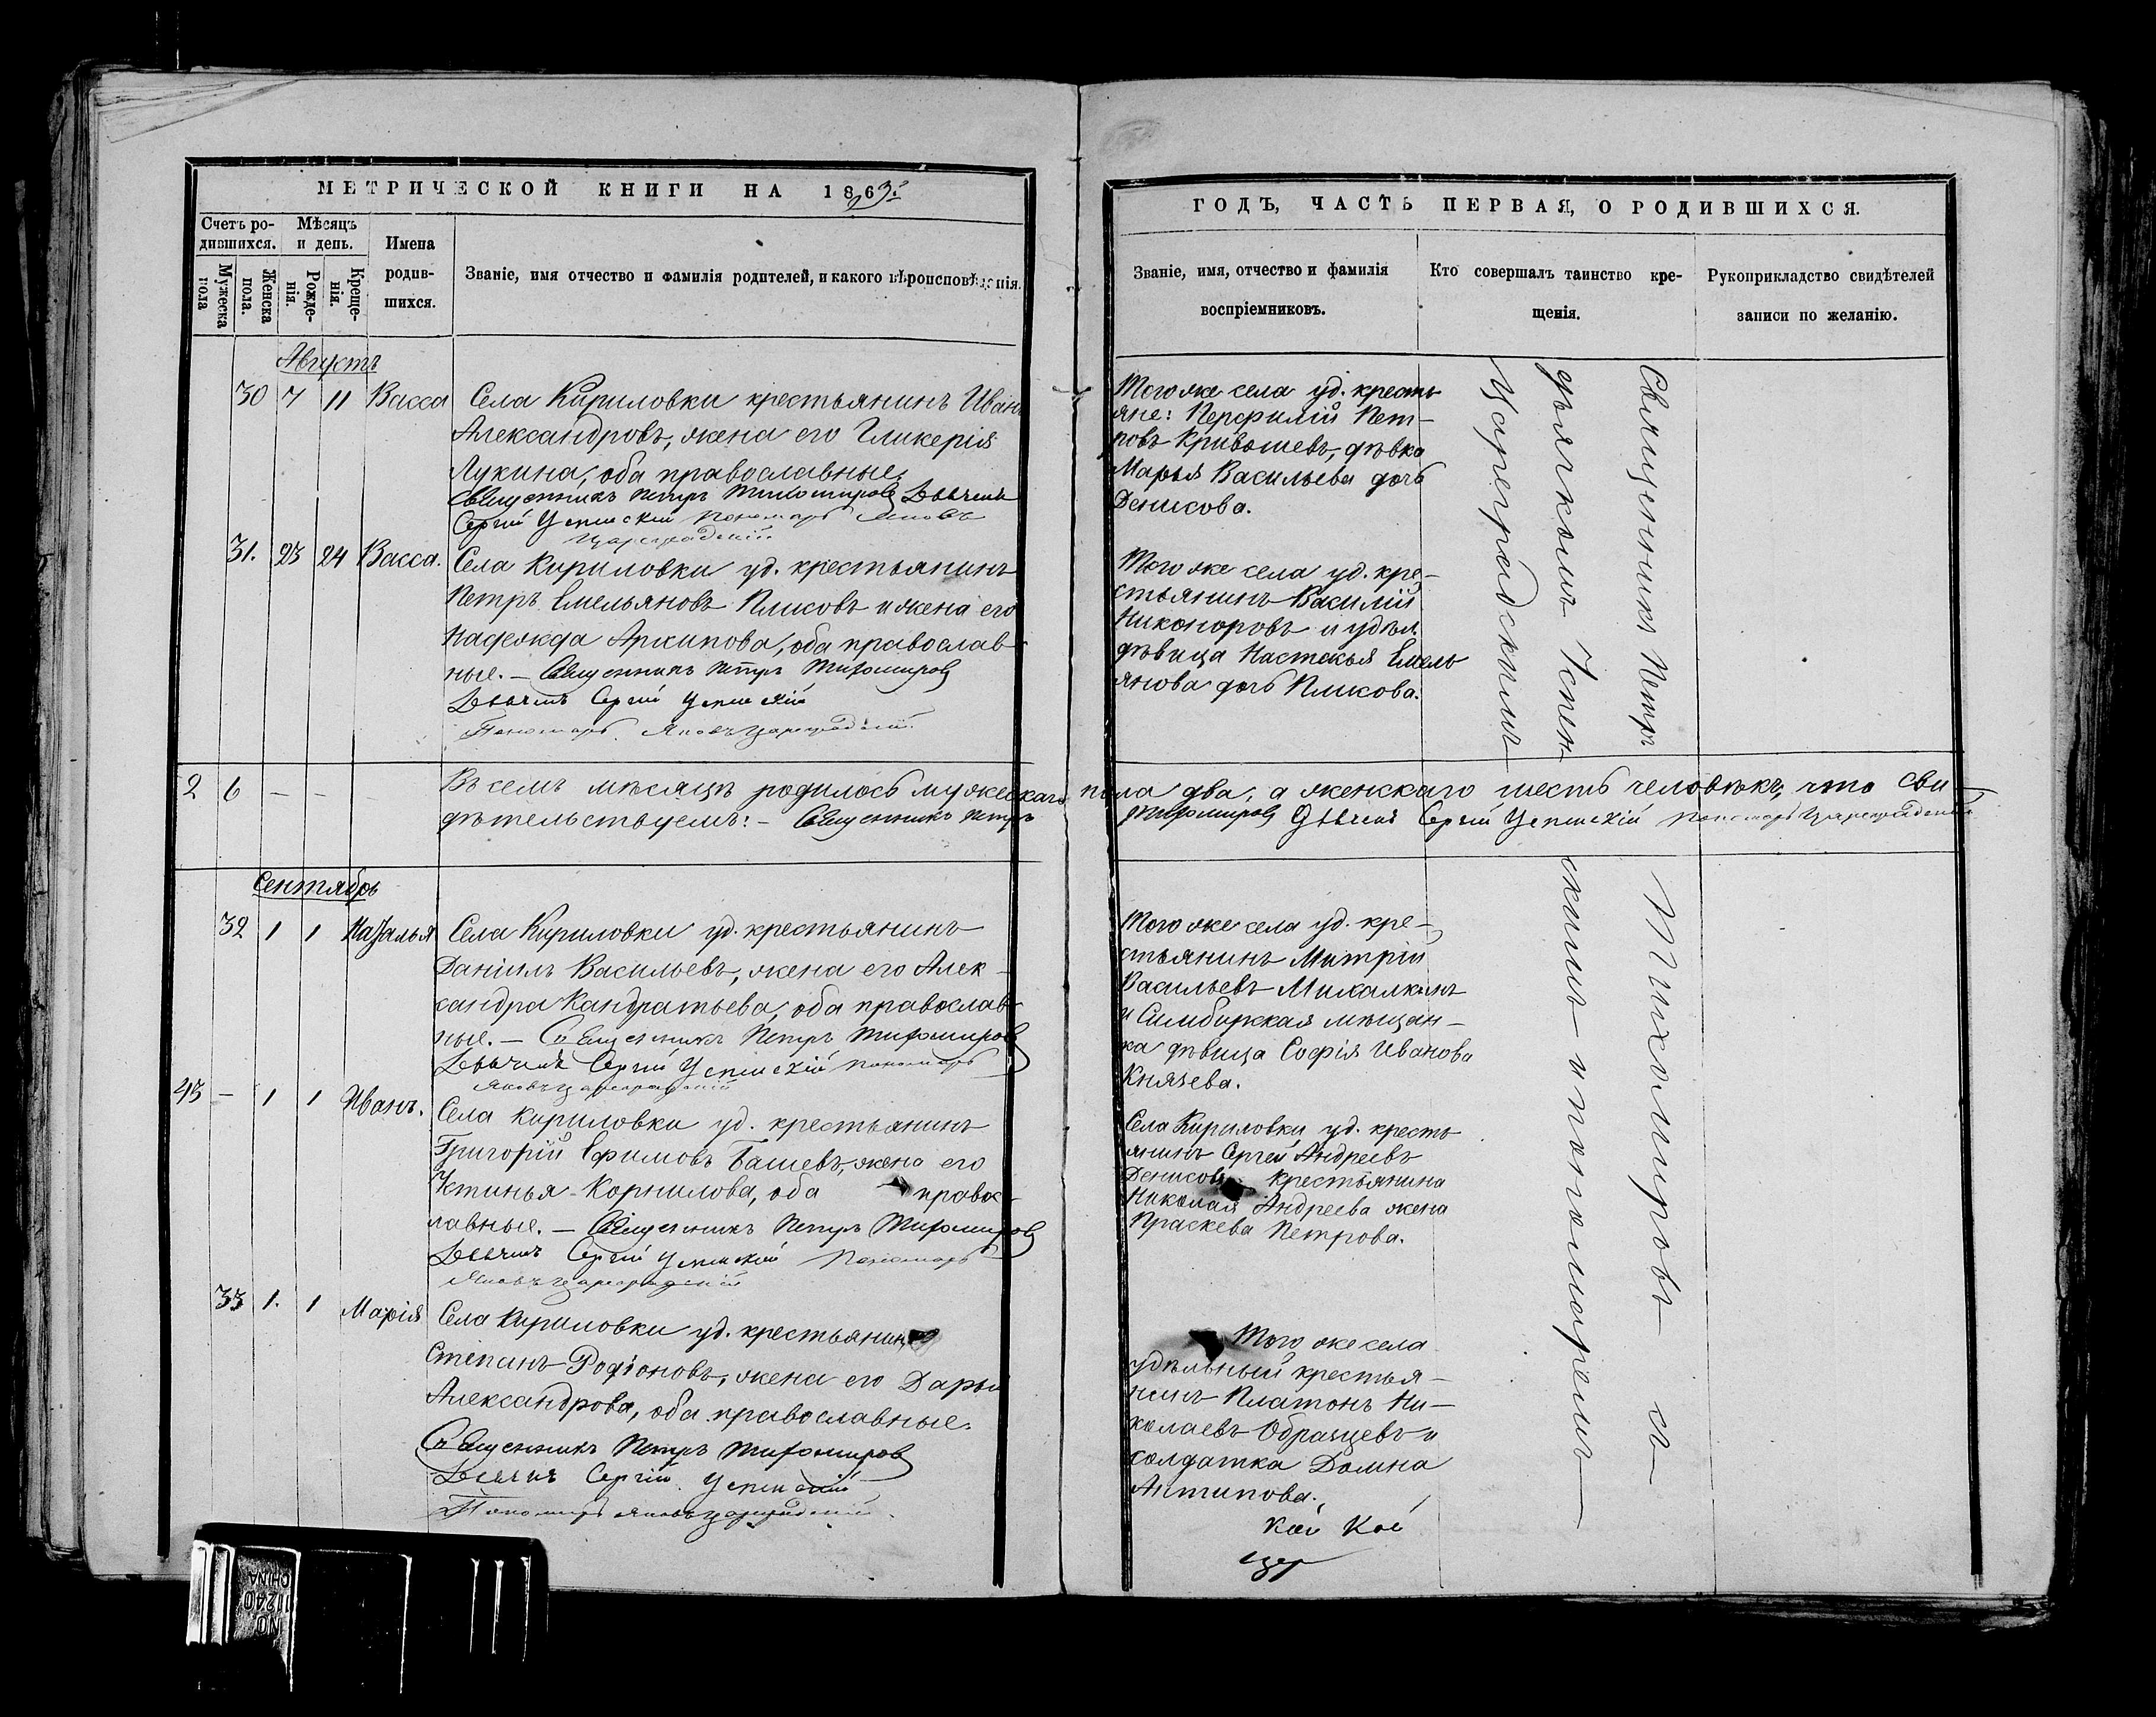 МЕТРИЧЕСКОЙ КНИГИ НА 1863й
Счетъ ро-
дившихся.
Мѣсяцъ
и день.
Имена
родив-
шихся.
Мужеска
пола
Женска
пола.
Рожде-
нія.
Креще-
нія.
Званіе, имя отчество и фамилія родителей, и какого вѣроисповѣданія.
Августъ
30 7 11 Васса Села Кириловки крестьянинъ Иванъ
Александровъ, жена его Гликерія
Лукина, оба православные.
Священникъ Петръ Тихомировъ Дьячекъ
Сергій Успенскій пономарь Яковъ
Цареградскій
31. 23 24 Васса. Села Кириловки уд. крестьянинъ
Петръ Емельяновъ Пликовъ и жена его
Надежда Архипова, оба православ-
ные. – Священникъ Петръ Тихомировъ
Дьячекъ Сергій Успенскій
Пономарь Яковъ Цареградскій
2 6 – – Въ семъ мѣсяцѣ родилось мужескаго
дѣтельствуемъ: – Священникъ Петръ
Сентябрь
32 1 1 Наталья Села Кириловки уд. крестьянинъ
Даніилъ Васильевъ, жена его Алек-
сандра Кандратьева, оба православ-
ные. – Священникъ Петръ Тихомировъ
Дьячекъ Сергій Успенскій пономарь
Яковъ Цареградскій
43 – 1 1 Иванъ. Села Кириловки уд. крестьянинъ
Григорій Ефимовъ Башевъ, жена его
Устинья Корнилова, оба правос-
лавные. – Священникъ Петръ Тихомировъ
Дьячекъ Сергій Успенскій Пономарь
Яковъ Цареградскій
33 1. 1 Марія Села Кириловки уд. крестьянинъ
Степанъ Родіоновъ, жена его Дарья
Александрова, оба православные.
Священникъ Петръ Тихомировъ
Дьячекъ Сергій Успенскій
Пономарь Яковъ Цареградскій
ГОДЪ, ЧАСТЬ ПЕРВАЯ, О РОДИВШИХСЯ.
Званіе, имя, отчество и фамилія
воспріемниковъ.
Кто совершалъ таинство кре-
щенія.
Рукоприкладство свидѣтелей
записи по желанію.
Тогоже села уд. кресть
яне: Перфилій Пет-
ровъ Кривошевъ, дѣвка
Марья Васильева дочь
Денисова.
Тогоже села уд. кре-
стьянинъ Василій
Никоноровъ и удѣл.
дѣвица Настасья Емель
янова дочь Пликова.
пола два, а женскаго шесть человѣкъ, что сви-
Тихомировъ Дьячекъ Сергій Успенскій пономарь Цареградскій
Тогоже села уд. кре-
стьянинъ Митрій
Васильевъ Михалкинъ
и Симбирская мѣщан-
ка дѣвица Софія Иванова
Князева.
Села Кириловки уд. кресть
янинъ Сергей Андреевъ
Денисовъ крестьянина
Николая Андреева жена
Праскева Петрова.
Того же села
удѣльный крестья-
нинъ Платонъ Ни-
колаевъ Образцевъ и
солдатка Домна
Антипова.
Священникъ Петръ
Тихомировъ съ
дьячкомъ Успен-
скимъ и пономаремъ
Цареградскимъ